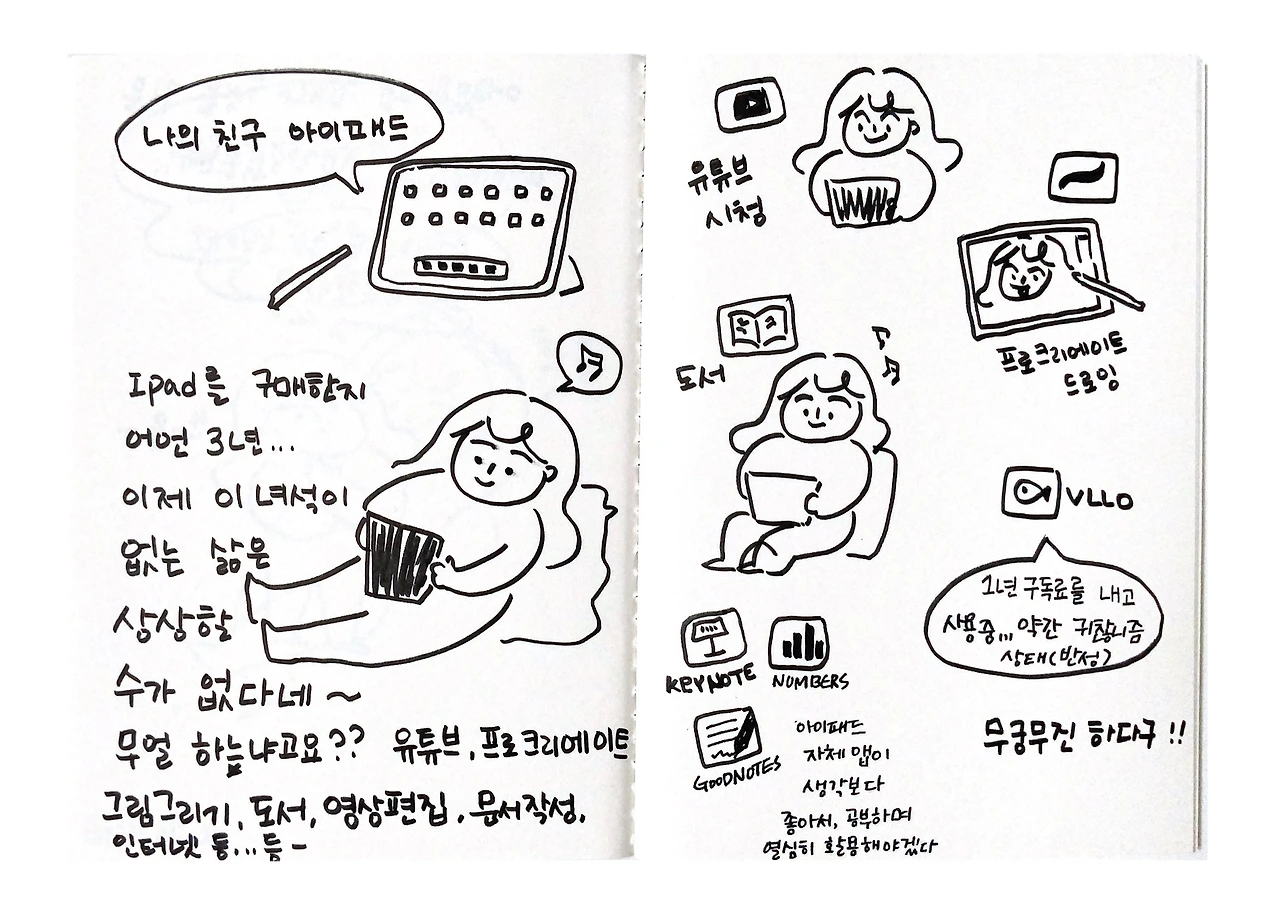 나의 친구 아이패드
Ipad를 구매한지
어언 3년...
이제 이 녀석이
없는 삶은
상상할
수가 없다네~
무얼 하느냐고요?? 유튜브, 프로크리에이트
그림그리기, 도서, 영상편집, 문서작성,
인터넷 통...등-
유튜브
시청
프로크리에이트
드로잉
도서
VLLO
1년 구독료를 내고
사용중... 약간 귀찮니즘
상태(반성)
KEYNOTE
NUMBERS
GOODNOTES
아이패드
자체 앱이
생각보다
좋아서, 공부하며
열심히 활용해야겠다
무궁무진 하다구!!